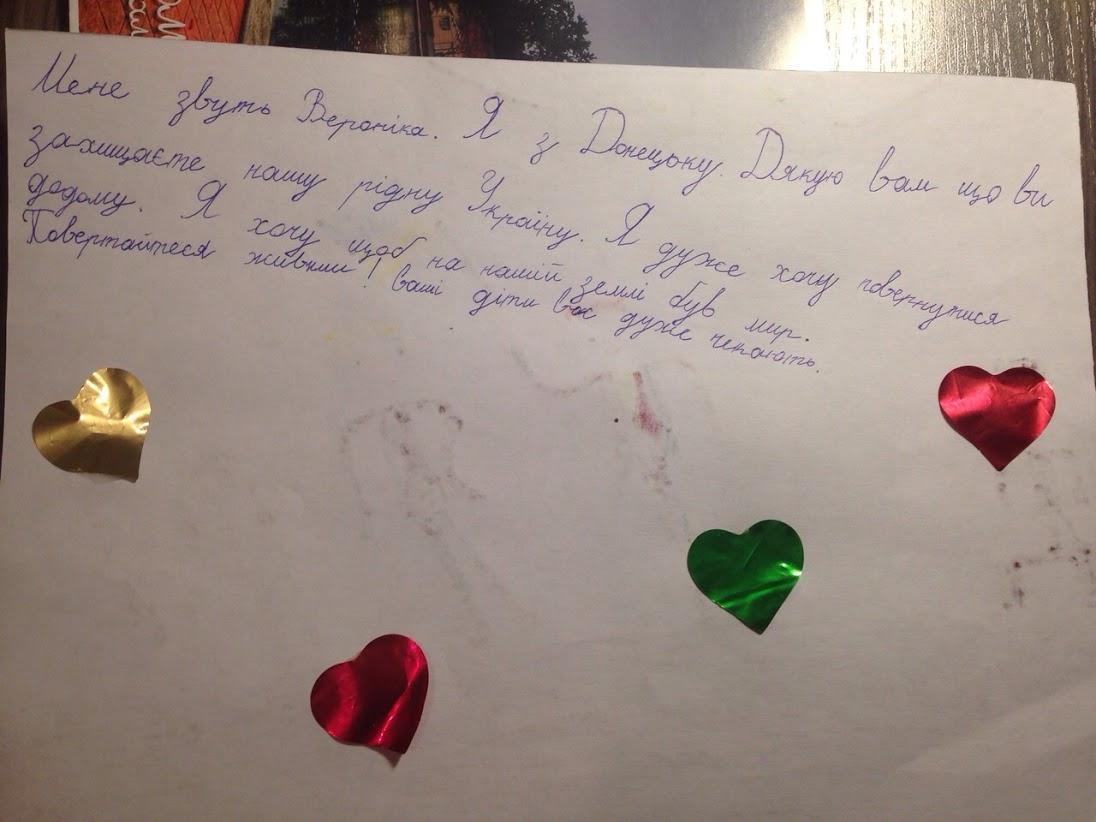 Мене звуть Вероніка. Я з Донецьку. Дякую вам що ви
захищаєте нашу рідну Україну. Я дуже хочу повернутися
додому. Я хочу щоб на нашій землі був мир.
Повертайтеся живими! Ваші діти вас дуже чекають.